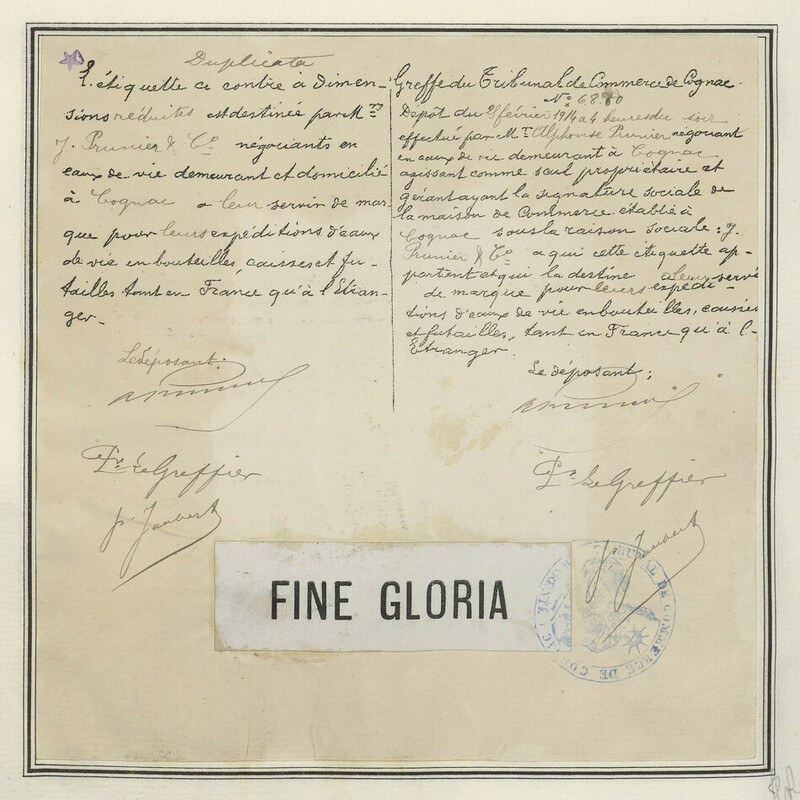 Duplicata
L'étiquette ci contre à Dimen-
sions réduites est destinée par Mrs
J. Prunier & Co négociants en
eaux de vie demeurant et domicilié
à Cognac a leur servir de mar
que pour leurs expéditions d'eaux
de vie en bouteilles, caisses et fu-
tailles tant en France qu'à l'Etran-
ger.
Le déposant:
Pr Le Greffier
Greffe du Tribunal de Commerce de Cognac.
No 6880
Dépôt du février 1914 a 4 heures du soir
effectué par Mr Alphonse Prunier négociant
en eaux de vie demeurant à Cognac
agissant comme seul propriétaire et
gérant ayant la signature sociale de
la maison de Commerce établie à
Cognac sous la raison sociale: J.
Prunier & Co a qui cette étiquette ap-
partient et qui la destine a leur servir
de marque pour leurs expédi-
tions d'eaux de vie en bouteilles, caisses
et futailles, tant en France qu'à l'-
Etranger.
Le déposant:
Pr Le Greffier
FINE GLORIA
TRIBUNAL DE COMMERCE DE COGNAC